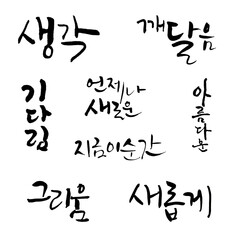 생각
깨달음
기다림
언제나
새로운
아름다운
지금이순간
그리움
새롭게